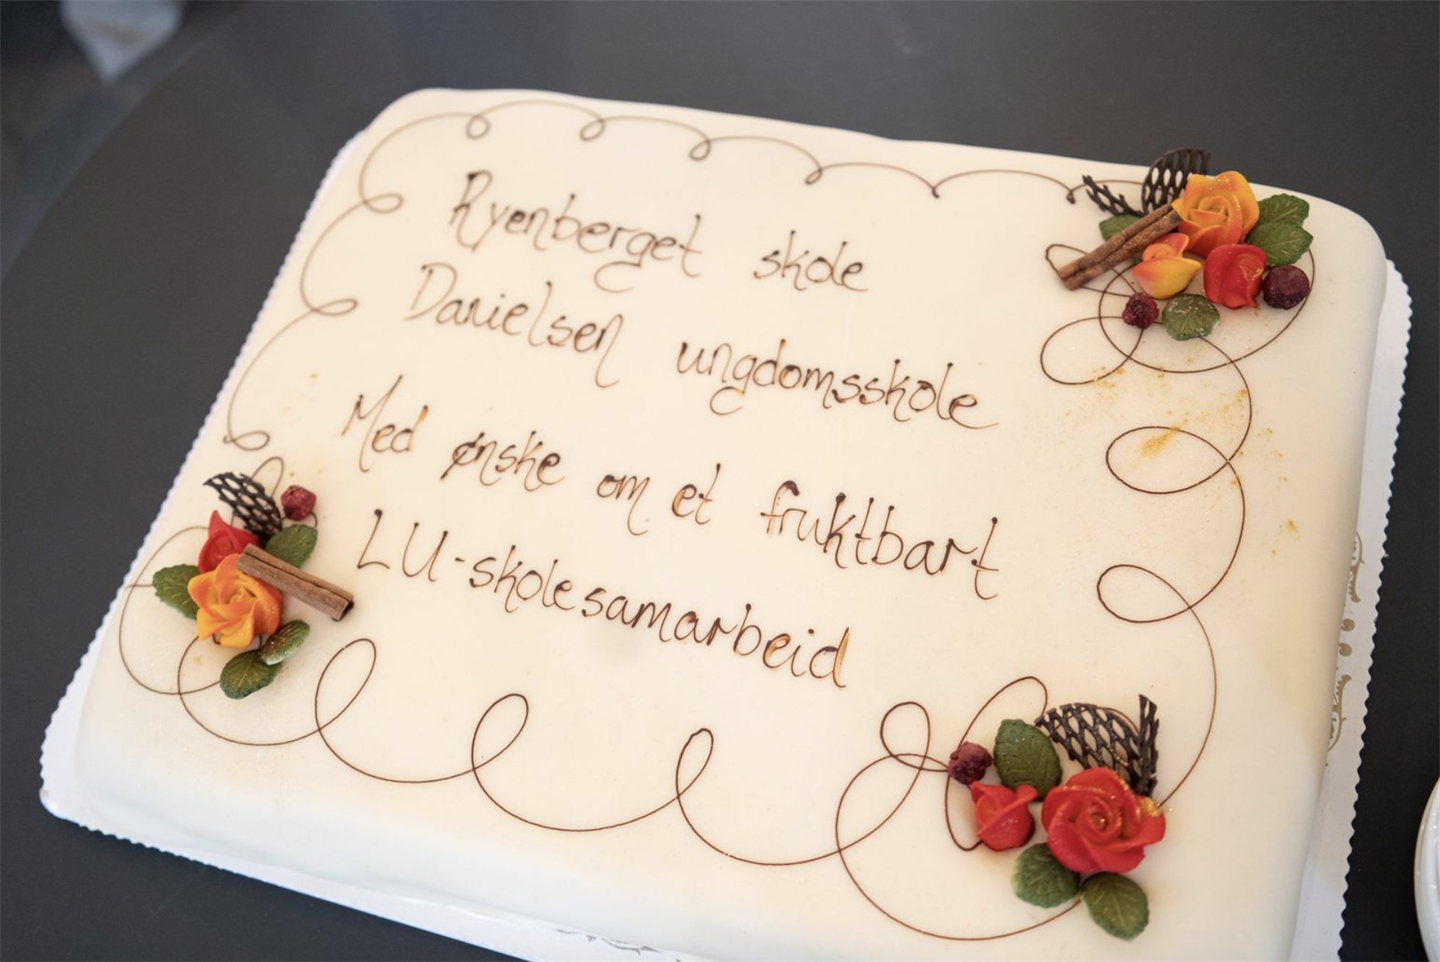 Ryenberget skole
Danielsen ungdomsskole
Med ønske om et fruktbart
LU-skolesamarbeid